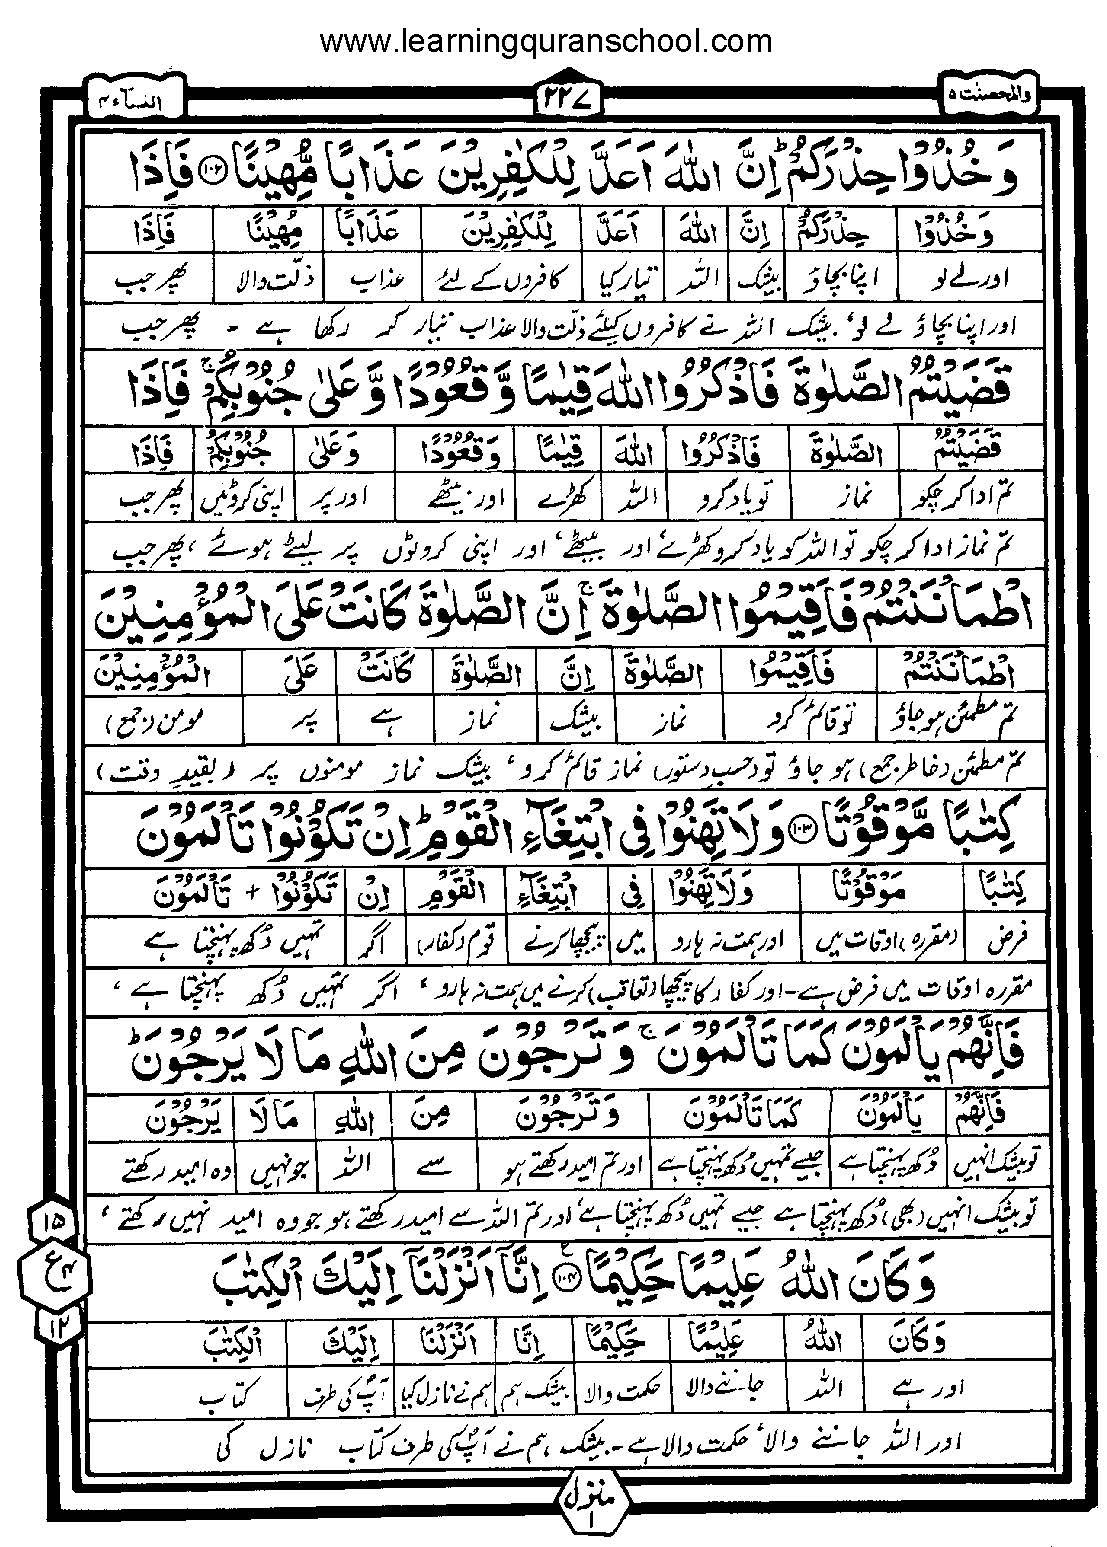 www.learningquranschool.com
والمحصنٰت ۵ ۲۲۷ النساء ۴
وَخُذُوْا حِذْرَكُمْ ؕ اِنَّ اللّٰهَ اَعَدَّ لِلْكٰفِرِيْنَ عَذَابًا مُّهِيْنًا ۝۱۰۲ فَاِذَا
وَخُذُوْا حِذْرَكُمْ اِنَّ اللّٰهَ اَعَدَّ لِلْكٰفِرِيْنَ عَذَابًا مُهِيْنًا فَاِذَا
اور لے لو اپنا بچاؤ بیشک اللہ تیار کیا کافروں کے لئے عذاب ذلت والا پھر جب
اور اپنا بچاؤ لے لو، بیشک اللہ نے کافروں کیلئے ذلت والا عذاب تیار کر رکھا ہے ۔ پھر جب
قَضَيْتُمُ الصَّلٰوةَ فَاذْكُرُوا اللّٰهَ قِيٰمًا وَّقُعُوْدًا وَّعَلٰى جُنُوْبِكُمْ ۚ فَاِذَا
قَضَيْتُمُ الصَّلٰوةَ فَاذْكُرُوا اللّٰهَ قِيٰمًا وَقُعُوْدًا وَعَلٰى جُنُوْبِكُمْ فَاِذَا
تم ادا کر چکو نماز تو یاد کرو اللہ کھڑے اور بیٹھے اور پر اپنی کروٹیں پھر جب
تم نماز ادا کر چکو تو اللہ کو یاد کرو کھڑے، اور بیٹھے، اور اپنی کروٹوں پر لیٹے ہوئے ، پھر جب
اطْمَاْنَنْتُمْ فَاَقِيْمُوا الصَّلٰوةَ ۚ اِنَّ الصَّلٰوةَ كَانَتْ عَلَى الْمُؤْمِنِيْنَ
اطْمَاْنَنْتُمْ فَاَقِيْمُوا الصَّلٰوةَ اِنَّ الصَّلٰوةَ كَانَتْ عَلَى الْمُؤْمِنِيْنَ
تم مطمئن ہو جاؤ تو قائم کرو نماز بیشک نماز ہے پر مومن (جمع)
تم مطمئن (خاطر جمع) ہو جاؤ تو (حسب دستور) نماز قائم کرو، بیشک نماز مومنوں پر (بقید وقت)
كِتٰبًا مَّوْقُوْتًا ۝۱۰۳ وَلَا تَهِنُوْا فِي ابْتِغَآءِ الْقَوْمِ ؕ اِنْ تَكُوْنُوْا تَاْلَمُوْنَ
كِتٰبًا مَوْقُوْتًا وَلَا تَهِنُوْا فِي ابْتِغَآءِ الْقَوْمِ اِنْ تَكُوْنُوْا + تَاْلَمُوْنَ
فرض (مقررہ) اوقات میں اور ہمت نہ ہارو میں پیچھا کرنے قوم (کفار) اگر تمہیں دکھ پہنچتا ہے
مقررہ اوقات میں فرض ہے ۔ اور کفار کا پیچھا (تعاقب) کرنے میں ہمت نہ ہارو، اگر تمہیں دُکھ پہنچتا ہے ،
فَاِنَّهُمْ يَاْلَمُوْنَ كَمَا تَاْلَمُوْنَ ۚ وَتَرْجُوْنَ مِنَ اللّٰهِ مَا لَا يَرْجُوْنَ ؕ
فَاِنَّهُمْ يَاْلَمُوْنَ كَمَا تَاْلَمُوْنَ وَتَرْجُوْنَ مِنَ اللّٰهِ مَا لَا يَرْجُوْنَ
تو بیشک انہیں دُکھ پہنچتا ہے جیسے تمہیں دُکھ پہنچتا ہے اور تم امید رکھتے ہو سے اللہ جو نہیں وہ امید رکھتے
تو بیشک انہیں (بھی) دُکھ پہنچتا ہے جیسے تمہیں دُکھ پہنچتا ہے، اور تم اللہ سے امید رکھتے ہو جو وہ امید نہیں رکھتے ،
۱۵
ع ۴
۱۲
وَكَانَ اللّٰهُ عَلِيْمًا حَكِيْمًا ۝۱۰۴ اِنَّآ اَنْزَلْنَآ اِلَيْكَ الْكِتٰبَ
وَكَانَ اللّٰهُ عَلِيْمًا حَكِيْمًا اِنَّا اَنْزَلْنَا اِلَيْكَ الْكِتٰبَ
اور ہے اللہ جاننے والا حکمت والا بیشک ہم ہم نے نازل کیا آپؐ کی طرف کتاب
اور اللہ جاننے والا، حکمت والا ہے ۔ بیشک ہم نے آپؐ کی طرف کتاب نازل کی
منزل
۱